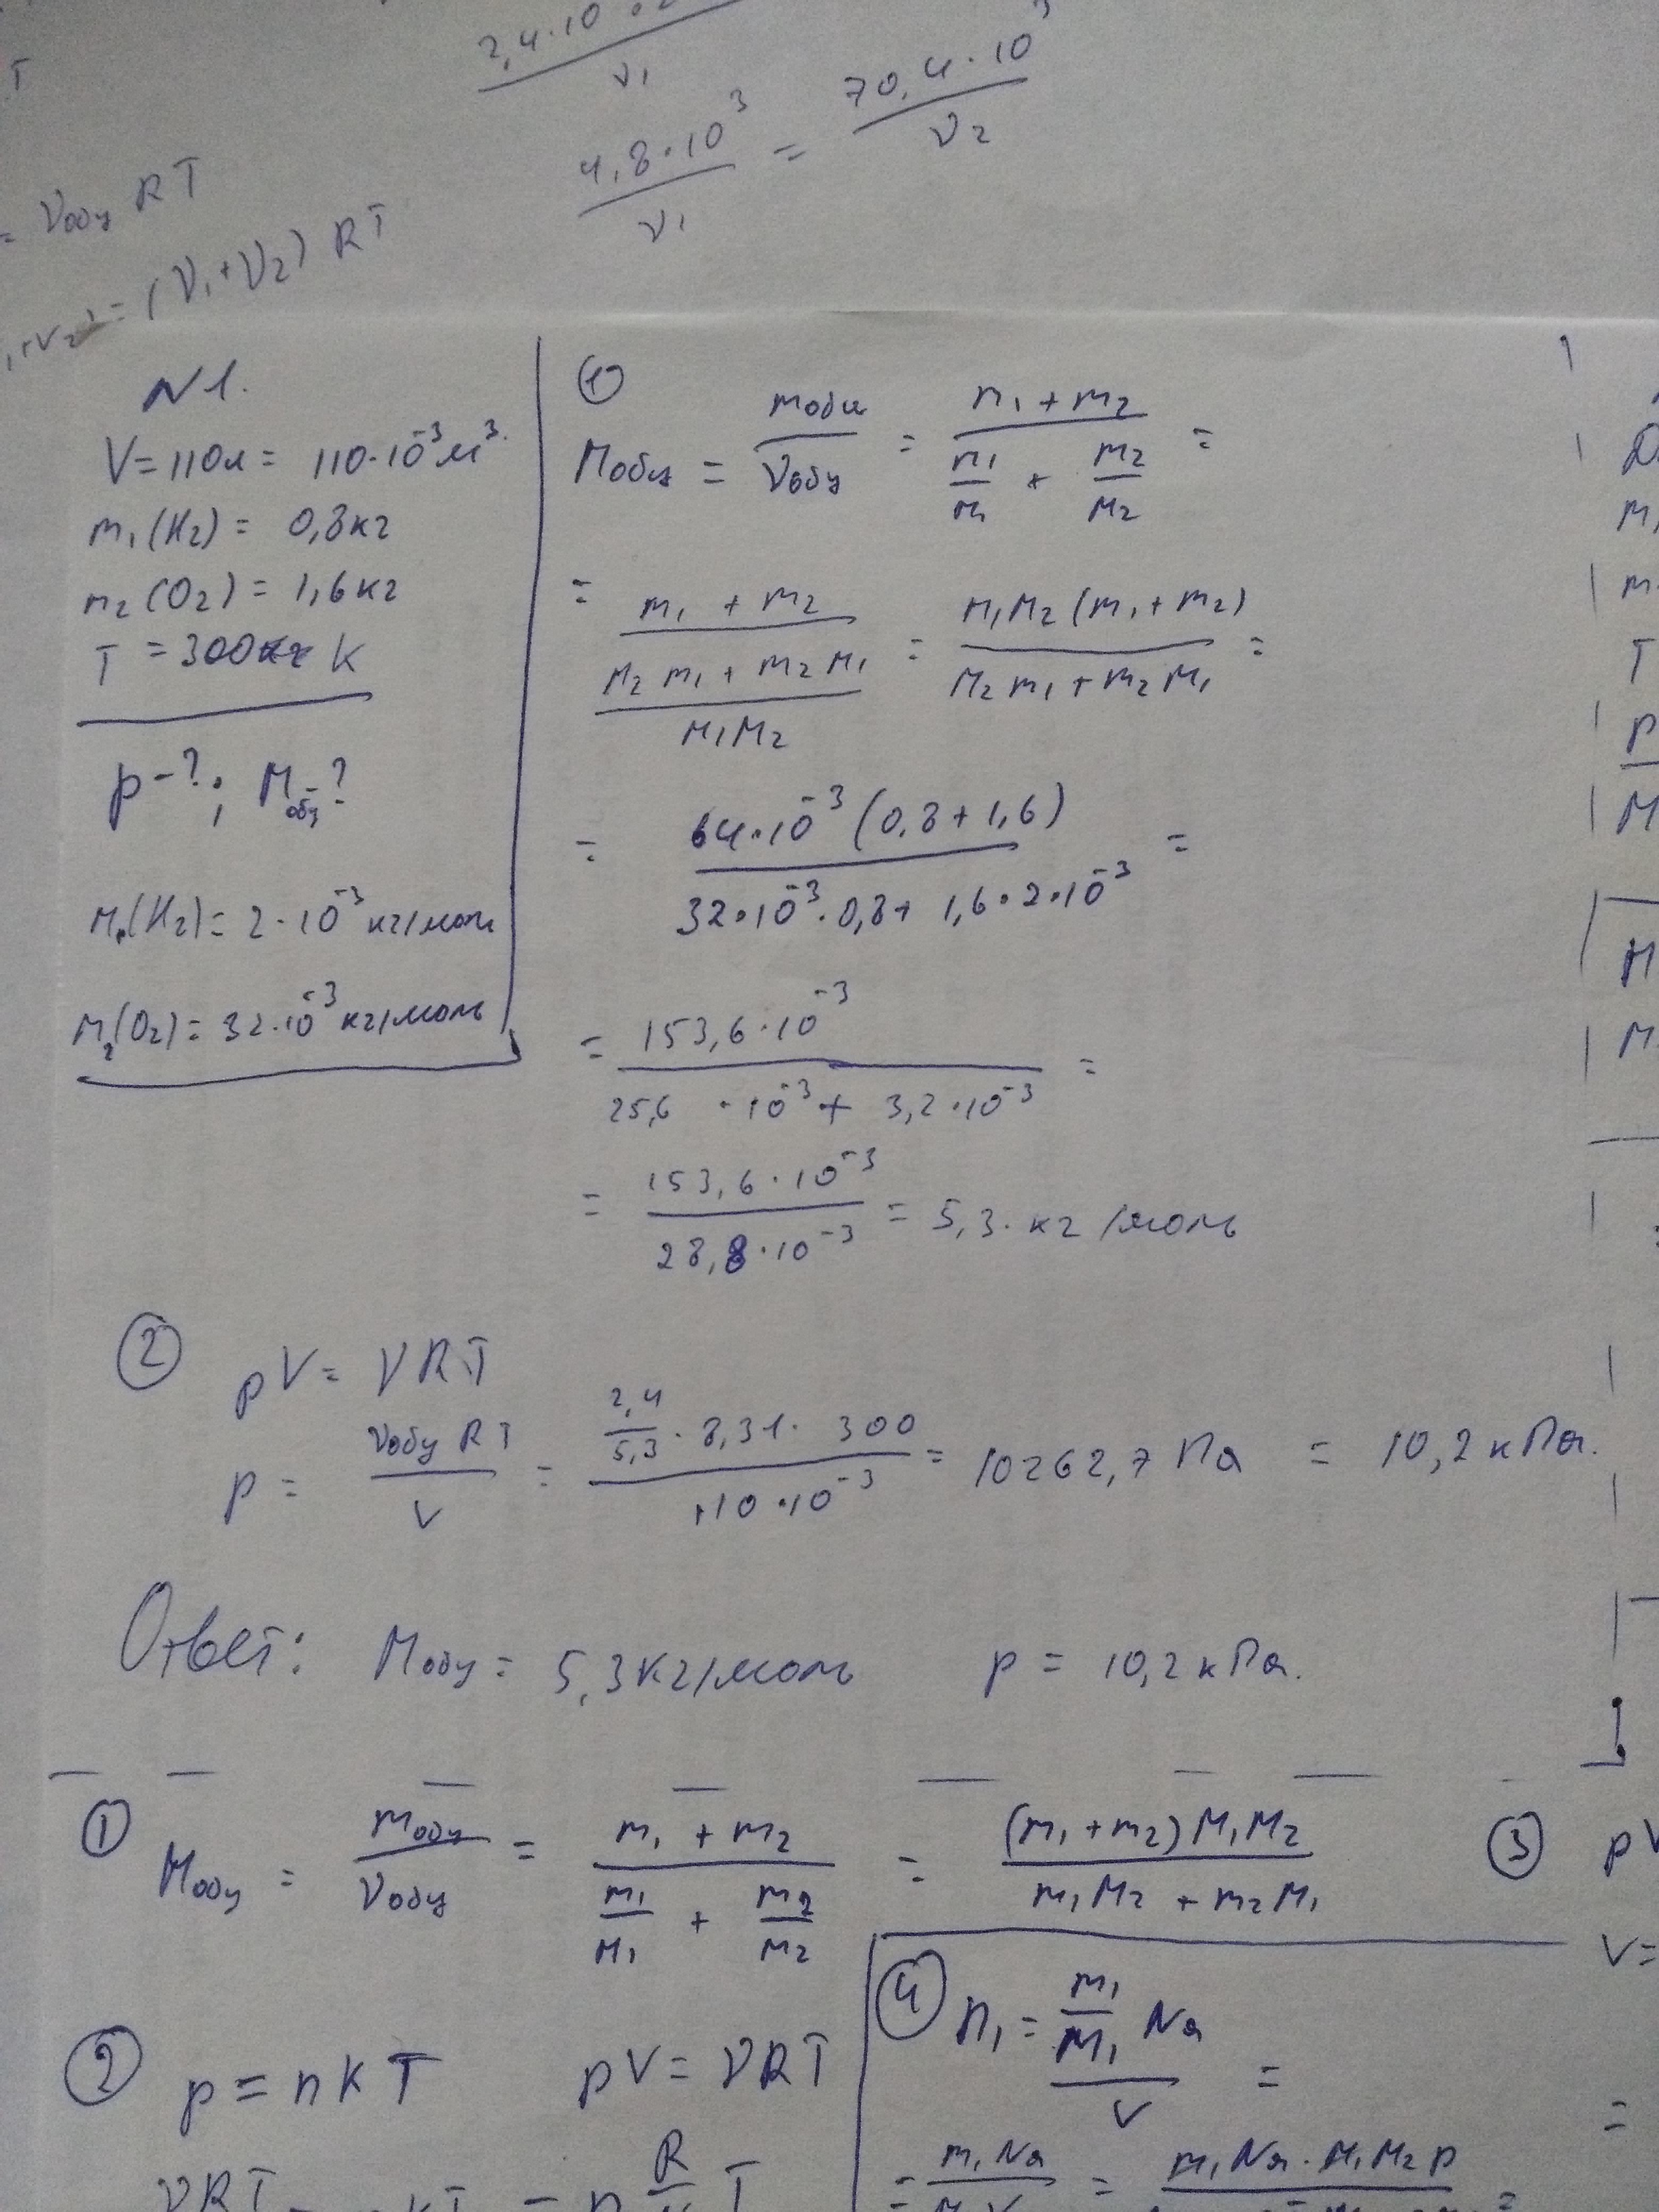 T
2,4·10
ν₁
4,8·10³ / ν₁ = 70,4·10³ / ν₂
= νобщ RT
= (ν₁+ν₂) RT
N1.
V = 110л = 110·10⁻³ м³.
m₁(H₂) = 0,8кг
m₂(O₂) = 1,6кг
T = 300 K
p-?; Mобщ-?
M₁(H₂) = 2·10⁻³ кг/моль
M₂(O₂) = 32·10⁻³ кг/моль
①
Mобщ = mобщ / νобщ = (m₁ + m₂) / (m₁/M₁ + m₂/M₂) =
= (m₁ + m₂) / ((M₂m₁ + m₂M₁) / M₁M₂) = M₁M₂(m₁ + m₂) / (M₂m₁ + m₂M₁) =
= 64·10⁻³(0,8 + 1,6) / (32·10⁻³·0,8 + 1,6·2·10⁻³) =
= 153,6·10⁻³ / (25,6 ·10⁻³ + 3,2·10⁻³) =
= 153,6·10⁻³ / 28,8·10⁻³ = 5,3. кг/моль
② pV = νRT
p = νобщ RT / V = (2,4/5,3 · 8,31 · 300) / (110·10⁻³) = 10262,7 Па = 10,2 кПа.
Ответ: Mобщ = 5,3кг/моль p = 10,2кПа.
① Mобщ = mобщ / νобщ = (m₁ + m₂) / (m₁/M₁ + m₂/M₂) = (m₁ + m₂)M₁M₂ / (m₁M₂ + m₂M₁)
③ pV
V=
② p = nkT pV = νRT
④ n₁ = (m₁/M₁ Nа) / V =
= m₁Nа = m₁Nа·M₁M₂p
νRT = R T
m
T
p
M
M
M